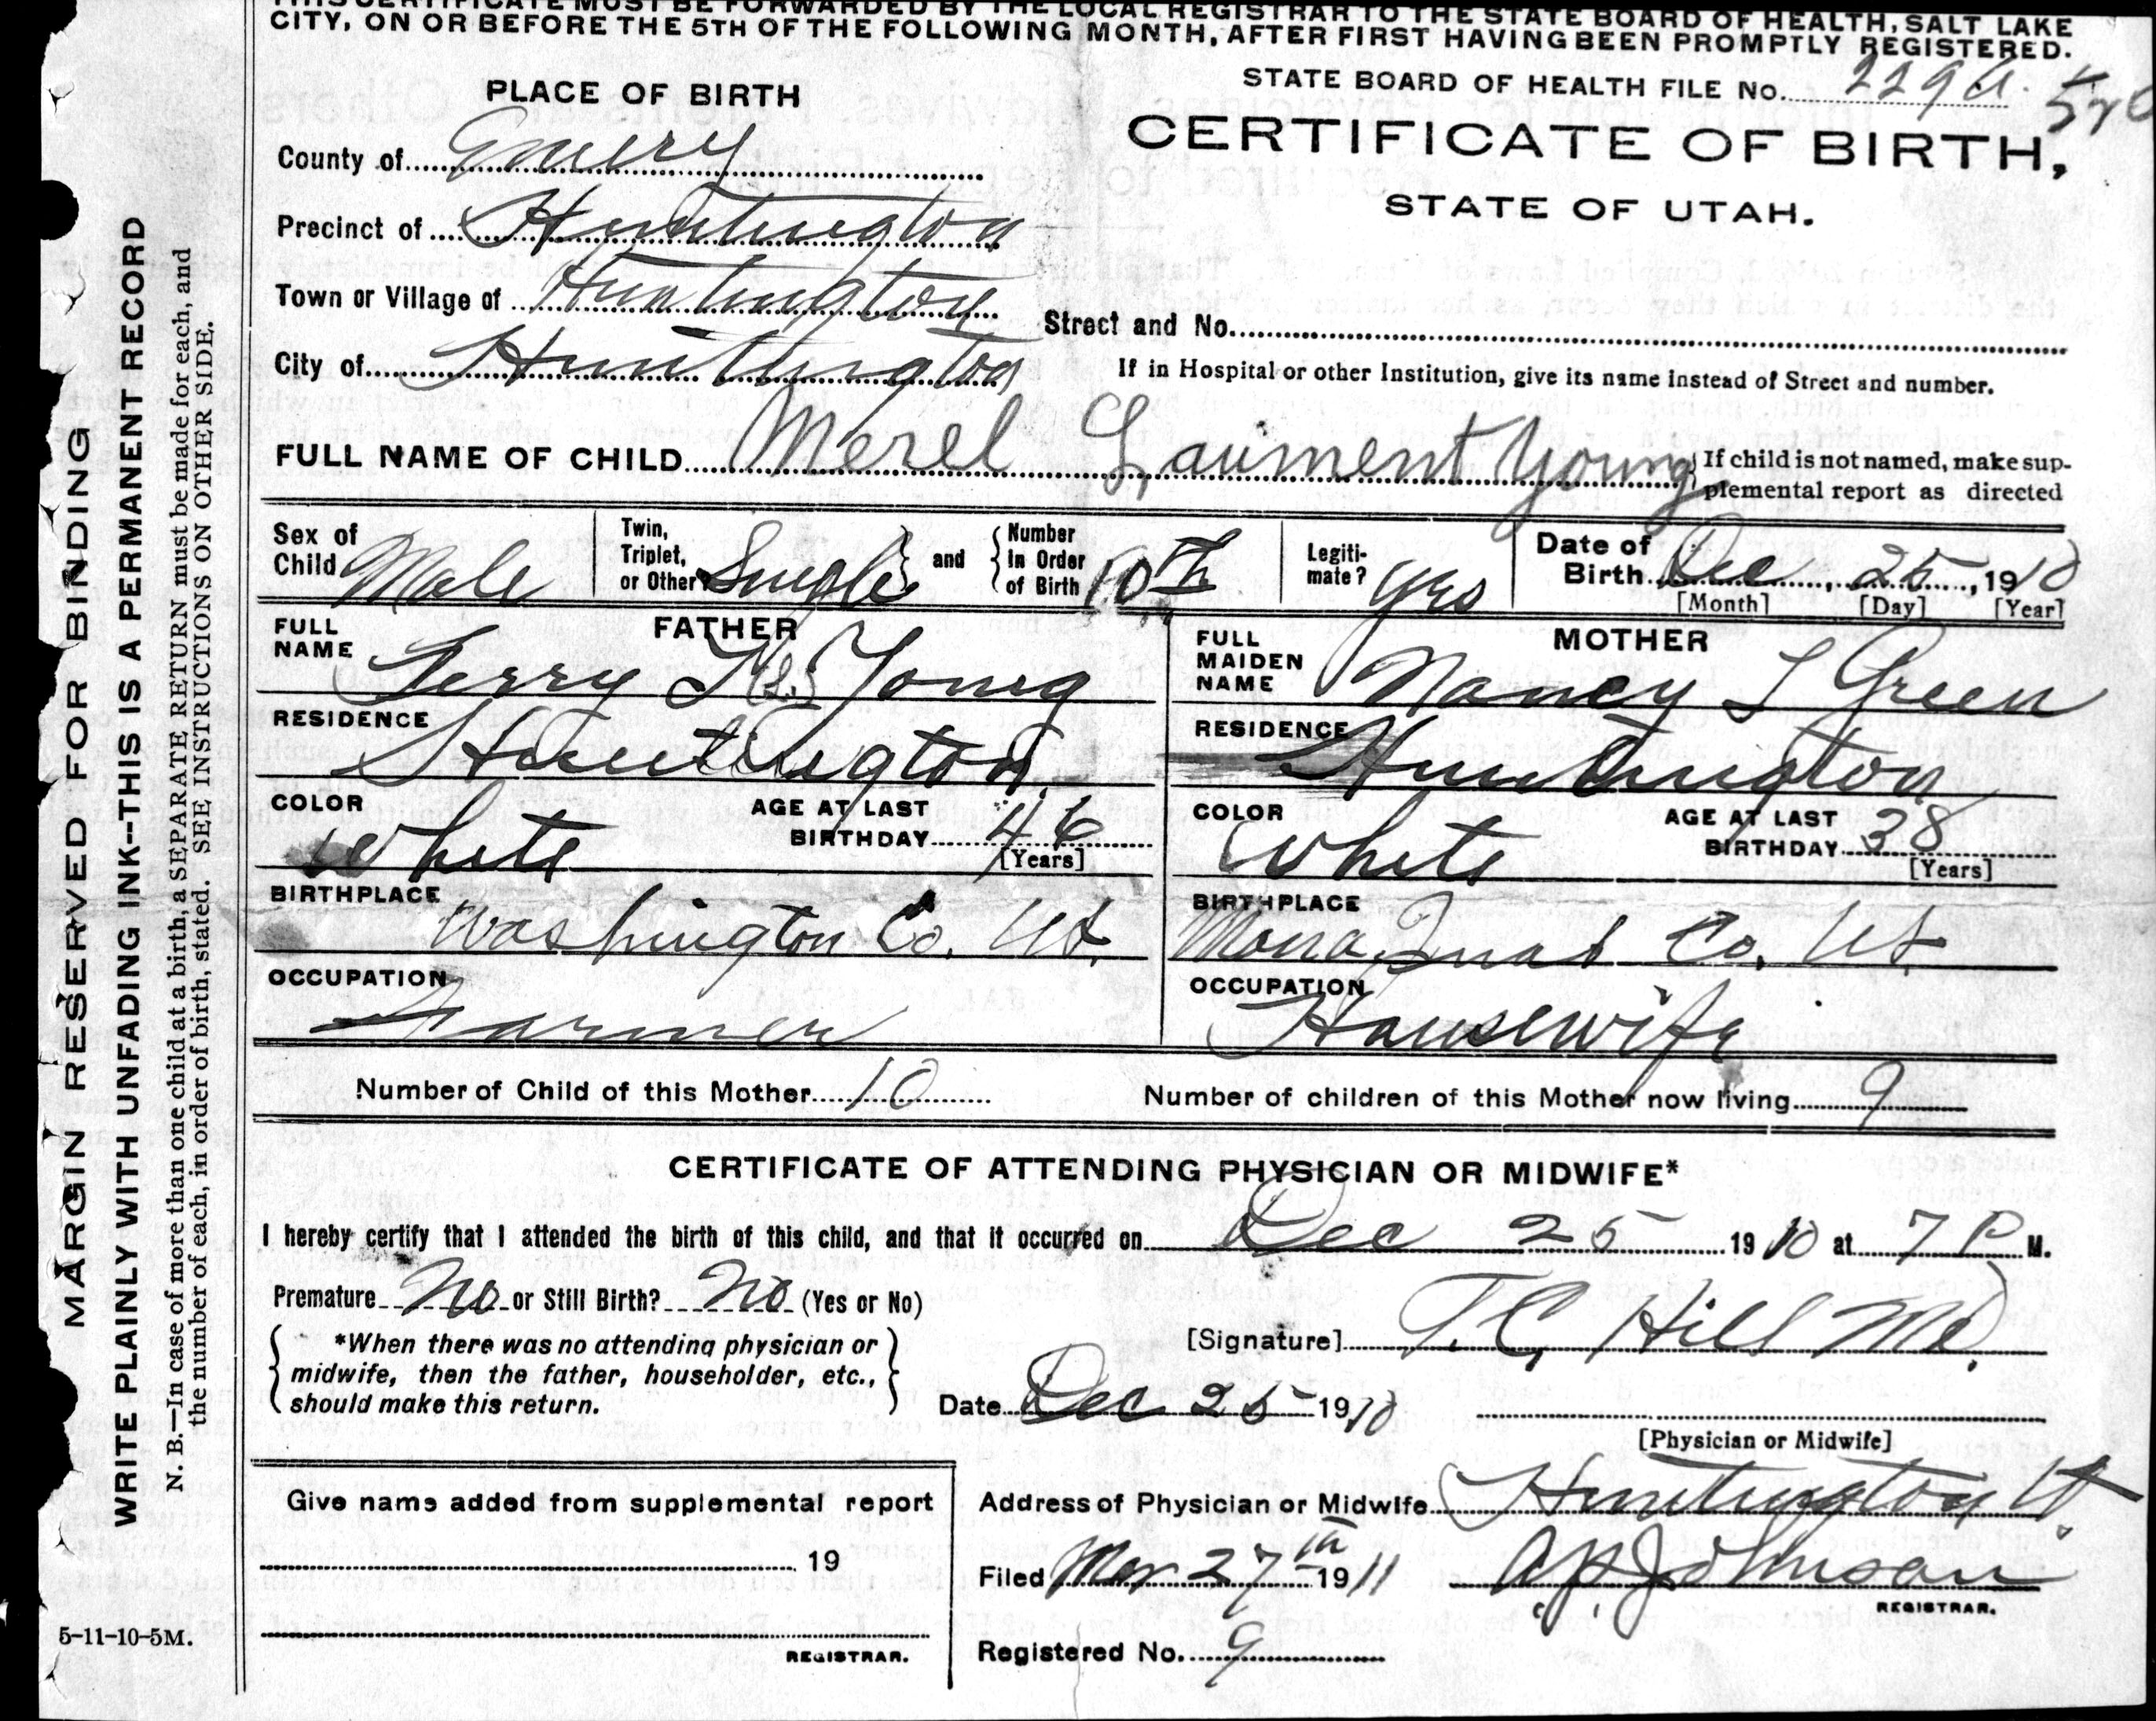 THIS CERTIFICATE MUST BE FORWARDED BY THE LOCAL REGISTRAR TO THE STATE BOARD OF HEALTH, SALT LAKE
CITY, ON OR BEFORE THE 5TH OF THE FOLLOWING MONTH, AFTER FIRST HAVING BEEN PROMPTLY REGISTERED.
PLACE OF BIRTH
STATE BOARD OF HEALTH FILE No. 229
CERTIFICATE OF BIRTH,
STATE OF UTAH.
County of Emery
Precinct of Huntington
Town or Village of Huntington
Street and No.
City of Huntington
If in Hospital or other Institution, give its name instead of Street and number.
FULL NAME OF CHILD Merel Young
If child is not named, make sup-
plemental report as directed
Sex of Child Male
Twin, Triplet, or Other Single and Number In Order of Birth 10th
Legiti-mate? Yes
Date of Birth Dec 25, 1910
[Month] [Day] [Year]
FATHER
FULL NAME Young
RESIDENCE Huntington
COLOR White
AGE AT LAST BIRTHDAY 46
[Years]
BIRTHPLACE
Washington Co. Ut.
OCCUPATION
Farmer
MOTHER
FULL MAIDEN NAME Nancy L Green
RESIDENCE Huntington
COLOR White
AGE AT LAST BIRTHDAY 38
[Years]
BIRTHPLACE
Mona Juab Co. Ut
OCCUPATION
Housewife
Number of Child of this Mother 10
Number of children of this Mother now living 9
CERTIFICATE OF ATTENDING PHYSICIAN OR MIDWIFE*
I hereby certify that I attended the birth of this child, and that it occurred on Dec 25 1910 at 7 P M.
Premature No or Still Birth? No (Yes or No)
*When there was no attending physician or
midwife, then the father, householder, etc.,
should make this return.
[Signature] T.C. Hill MD
Date Dec 25 1910
[Physician or Midwife]
Give name added from supplemental report
19
REGISTRAR.
Address of Physician or Midwife Huntington Ut
Filed Mar 27th 1911
Johnson
REGISTRAR.
Registered No. 9
5-11-10-5M.
MARGIN RESERVED FOR BINDING
WRITE PLAINLY WITH UNFADING INK--THIS IS A PERMANENT RECORD
N. B.—In case of more than one child at a birth, a SEPARATE RETURN must be made for each, and
the number of each, in order of birth, stated. SEE INSTRUCTIONS ON OTHER SIDE.